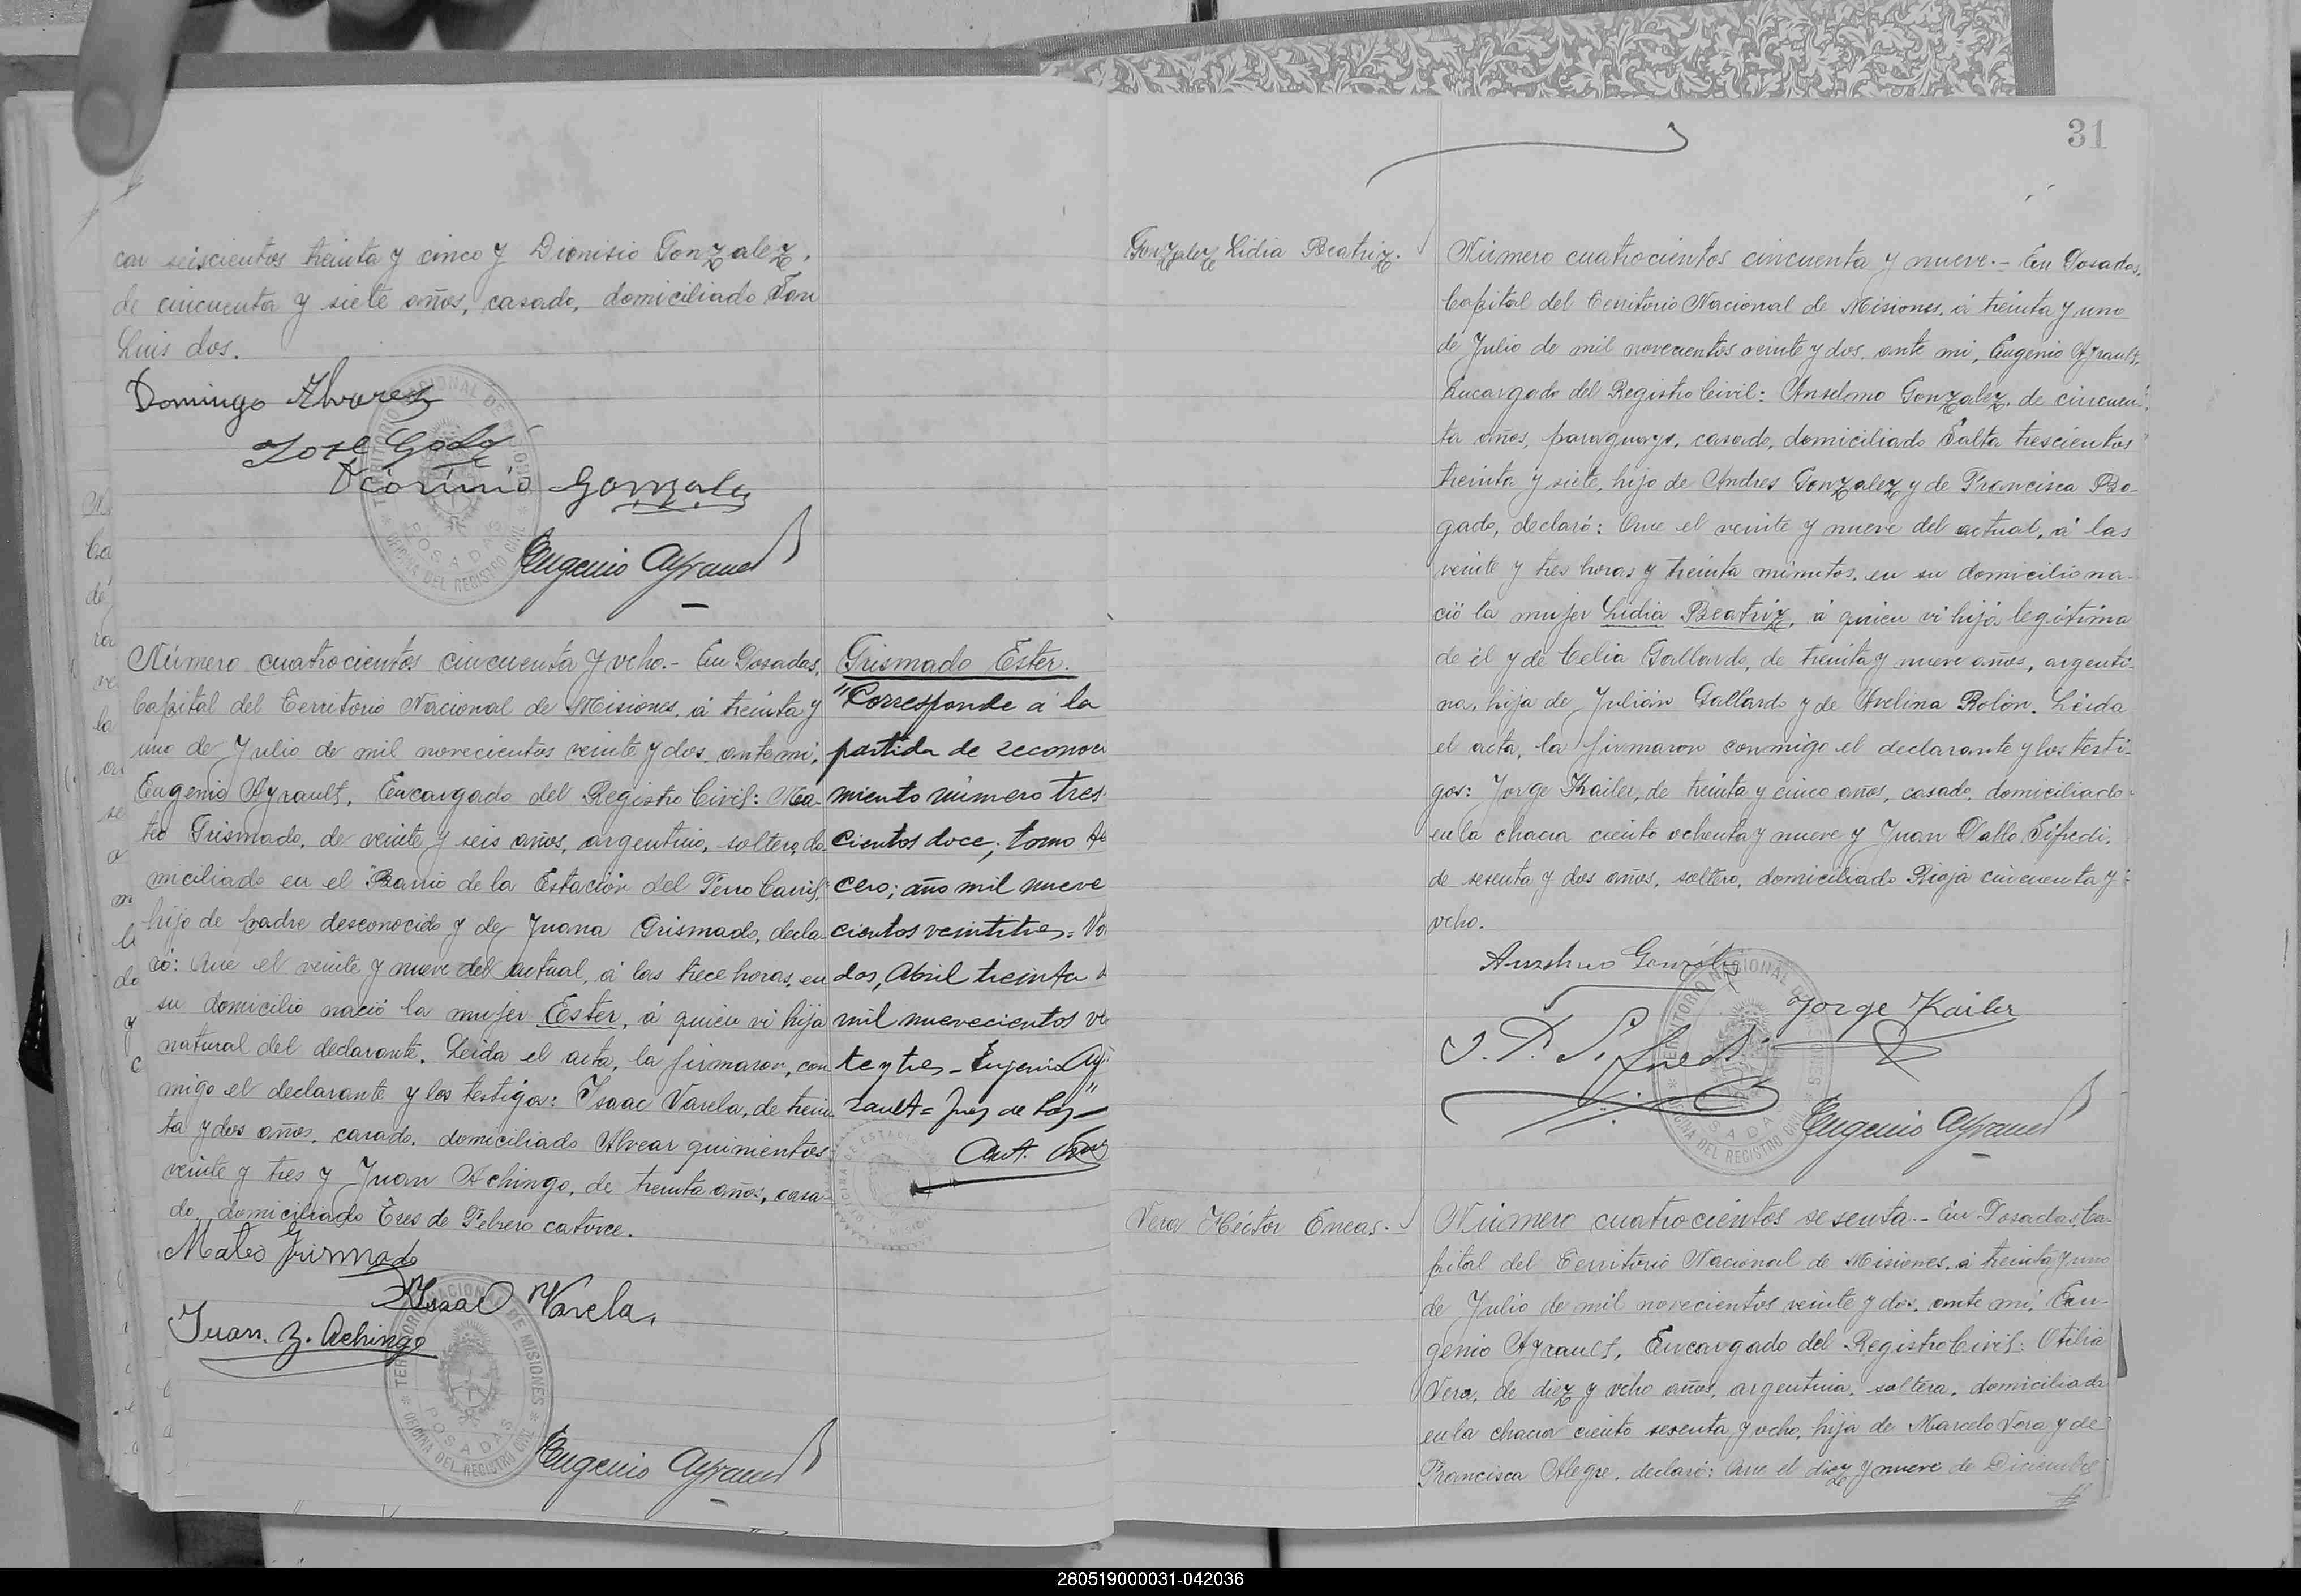 car seiscientos treinta y cinco y Dionisio Gonzalez,
de cincuenta y siete años, casado, domiciliado San
Luis dos.
Domingo Alvarez
José Godoy
Gonzalez
Eugenio Ayrault
Número cuatrocientos cincuenta y ocho.- En Posadas,
Capital del Territorio Nacional de Misiones, á treinta y
uno de Julio de mil novecientos veinte y dos, ante mi,
Eugenio Ayrault, Encargado del Registro Civil: Ma-
teo Grismado, de veinte y seis años, argentino, soltero, do-
miciliado en el Barrio de la Estación del Ferro Carril,
hijo de padre desconocido y de Juana Grismado, decla-
ró: Que el veinte y nueve del actual, á las trece horas, en
su domicilio nació la mujer Ester, á quien vi hija
natural del declarante. Leida el acta, la firmaron, con-
migo el declarante y los testigos: Isaac Varela, de trein-
ta y dos años, casado, domiciliado Alvear quinientos
veinte y tres y Juan Achingo, de treinta años, casa-
do, domiciliado Tres de Febrero catorce.
Mateo Grismado
Isaac Varela.
Juan. Z. Achingo
Eugenio Ayrault
Grismado Ester.
"Corresponde á la
partida de reconoci
miento número tres
cientos doce; tomo te
cero; año mil nueve
cientos veintitres=
das, Abril treinta
mil nuevecientos ve
te y tres_ Eugenio Ay
rault= Juez de Paz"
TERRITORIO NACIONAL DE MISIONES
POSADAS
OFICINA DEL REGISTRO CIVIL
31
Gonzalez Lidia Beatriz.
Número cuatrocientos cincuenta y nueve.- En Posadas,
Capital del Territorio Nacional de Misiones, á treinta y uno
de Julio de mil novecientos veinte y dos, ante mi, Eugenio Ayrault,
Encargado del Registro Civil: Anselmo Gonzalez, de cincuen-
ta años, paraguayo, casado, domiciliado Salta trescientos
treinta y siete, hijo de Andres Gonzalez y de Francisca Bo-
gado, declaró: Que el veinte y nueve del actual, á las
veinte y tres horas y treinta minutos, en su domicilio na-
ció la mujer Lidia Beatriz, á quien vi hija legitima
de él y de Celia Gallardo, de treinta y nueve años, argenti-
na, hija de Julián Gallardo y de Avelina Bolón. Leida
el acta, la firmaron conmigo el declarante y los testi-
gos: Jorge Kailer, de treinta y cinco años, casado, domiciliado
en la chacra ciento ochenta y nueve y Juan Pablo Sifredi,
de sesenta y dos años, soltero, domiciliado Rioja cincuenta y
ocho.
Anselmo González
Jorge Kailer
J. P. Sifredi
Eugenio Ayrault
Vera Héctor Eneas.-
Número cuatrocientos sesenta.- En Posadas, Ca-
pital del Territorio Nacional de Misiones, á treinta y uno
de Julio de mil novecientos veinte y dos, ante mi, Eu-
genio Ayrault, Encargado del Registro Civil: Otilia
Vera, de diez y ocho años, argentina, soltera, domiciliada
en la chacra ciento sesenta y ocho, hija de Marcelo Vera y de
Francisca Alegre, declaró: Que el diez y nueve de Diciembre
280519000031-042036